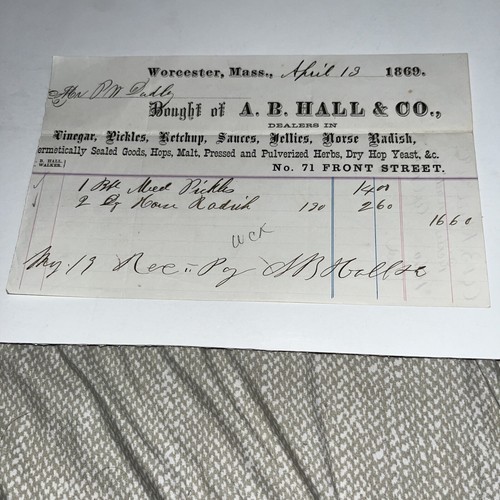 Worcester, Mass., April 13 1869.
Mr P W Dudly
Bought of A. B. HALL & CO.,
DEALERS IN
Vinegar, Pickles, Ketchup, Sauces, Jellies, Horse Radish,
ermetically Sealed Goods, Hops, Malt, Pressed and Pulverized Herbs, Dry Hop Yeast, &c.
B. HALL.
WALKER.
No. 71 FRONT STREET.
1 Med Pickles 14 00
2 Horse Radish 130 2 60
16 60
WCK
19 Rec Py A B Hall & Co